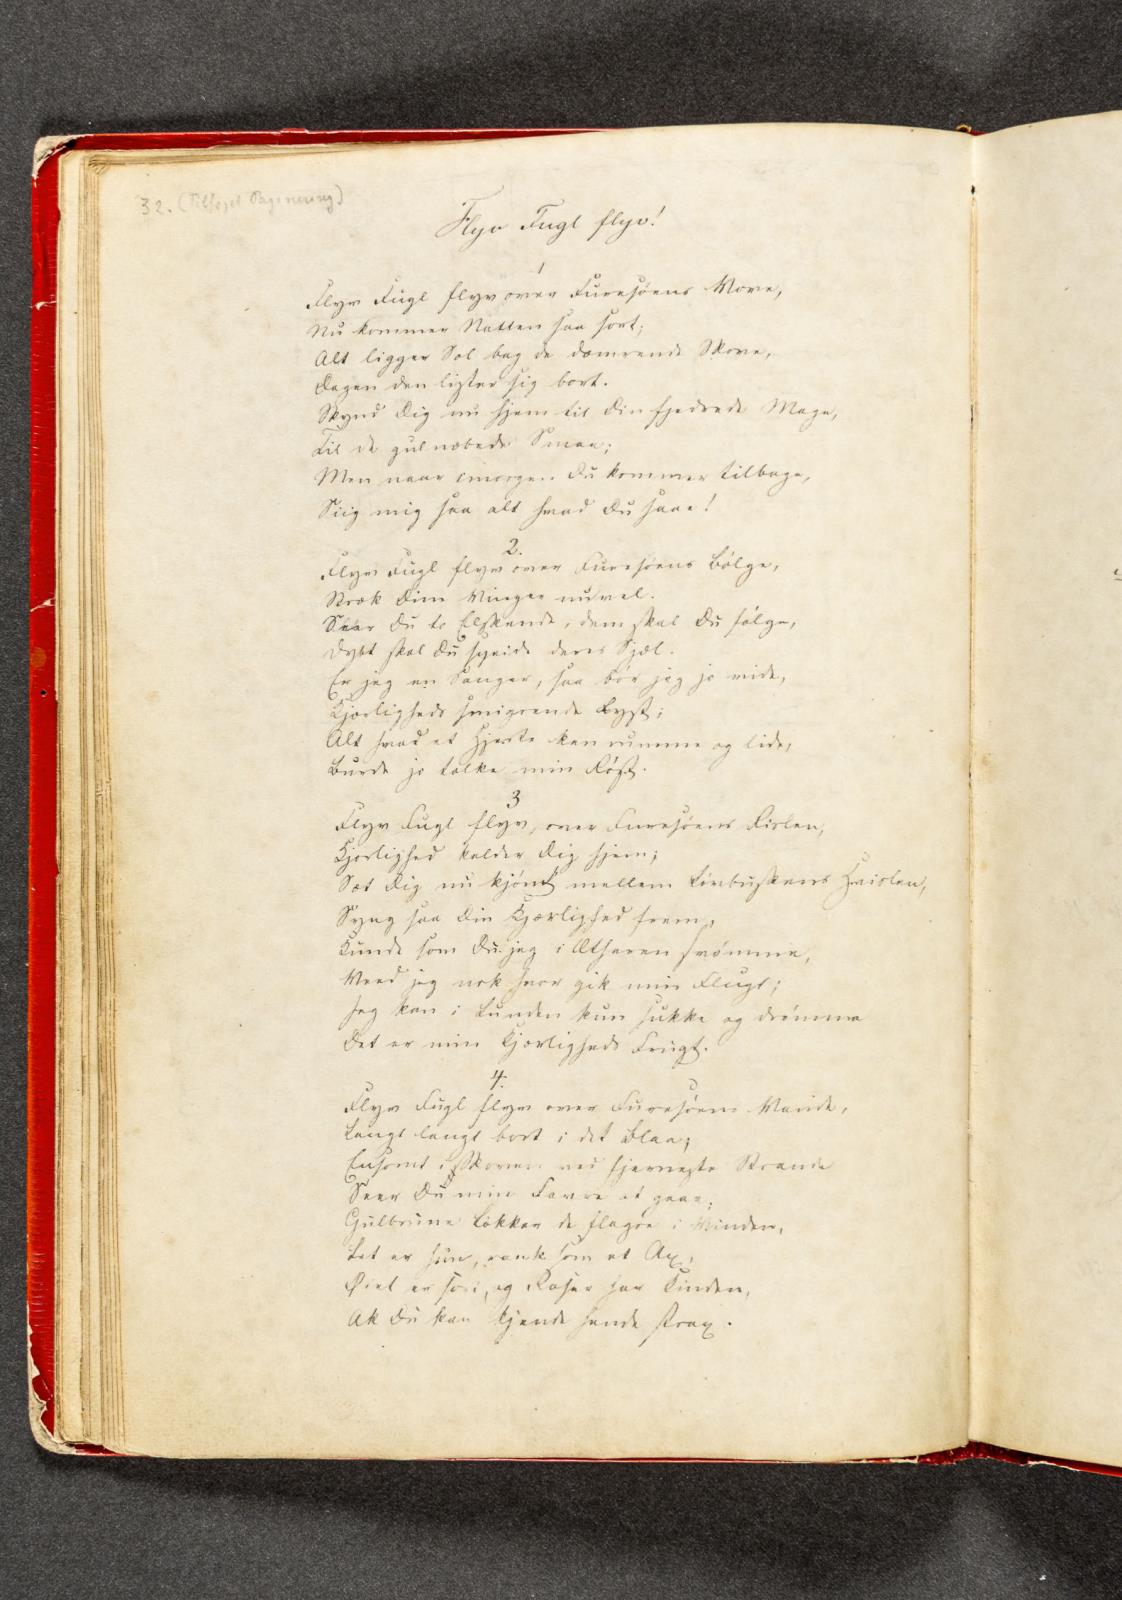 32. (Tilføjet Paginering)
Flyv Fugl flyv!
1
Flyv Fugl flyv over Furesøens Vove,
Nu kommer Natten saa sort;
Alt ligger Sol bag de dæmrende Skove,
Dagen den lister sig bort.
Skynd Dig nu hjem til Din fjedrede Mage,
Til de gulnæbede Smaae;
Men naar imorgen Du kommer tilbage,
Siig mig saa alt hvad Du saae!
2.
Flyv Fugl flyv over Furesøens Bølge,
Stræk Dine Vinger nu vel.
Seer Du to Elskende, dem skal Du følge,
Dybt skal Du speide deres Sjæl.
Er jeg en Sanger, saa bør jeg jo vide,
Kjærligheds smigrende Lyst;
Alt hvad et Hjerte kan rumme og lide,
Burde jo tolke min Røst.
3
Flyv Fugl flyv, over Furesøens Rislen,
Kjærlighed kalder Dig hjem;
Sæt Dig nu kjønt mellem Løvbuskens Hvislen,
Syng saa Din Kjærlighed frem,
Kunde som Du jeg i Ætheren svømme,
Veed jeg nok hvor gik min Flugt;
Jeg kan i Lunden kun sukke og drømme
Det er min Kjærligheds Frugt.
4.
Flyv Fugl flyv over Furesøens Vande,
Langt langt bort i det Blaa;
Eensomt i Skoven ved fjerneste Strande
Seer Du min Favre at gaae;
Gulbrune Lokker de flagre i Vinden,
Let er hun, rank som et Ax,
Øiet er sort, og Roser har Kinden,
Ak Du kan kjende hende strax.